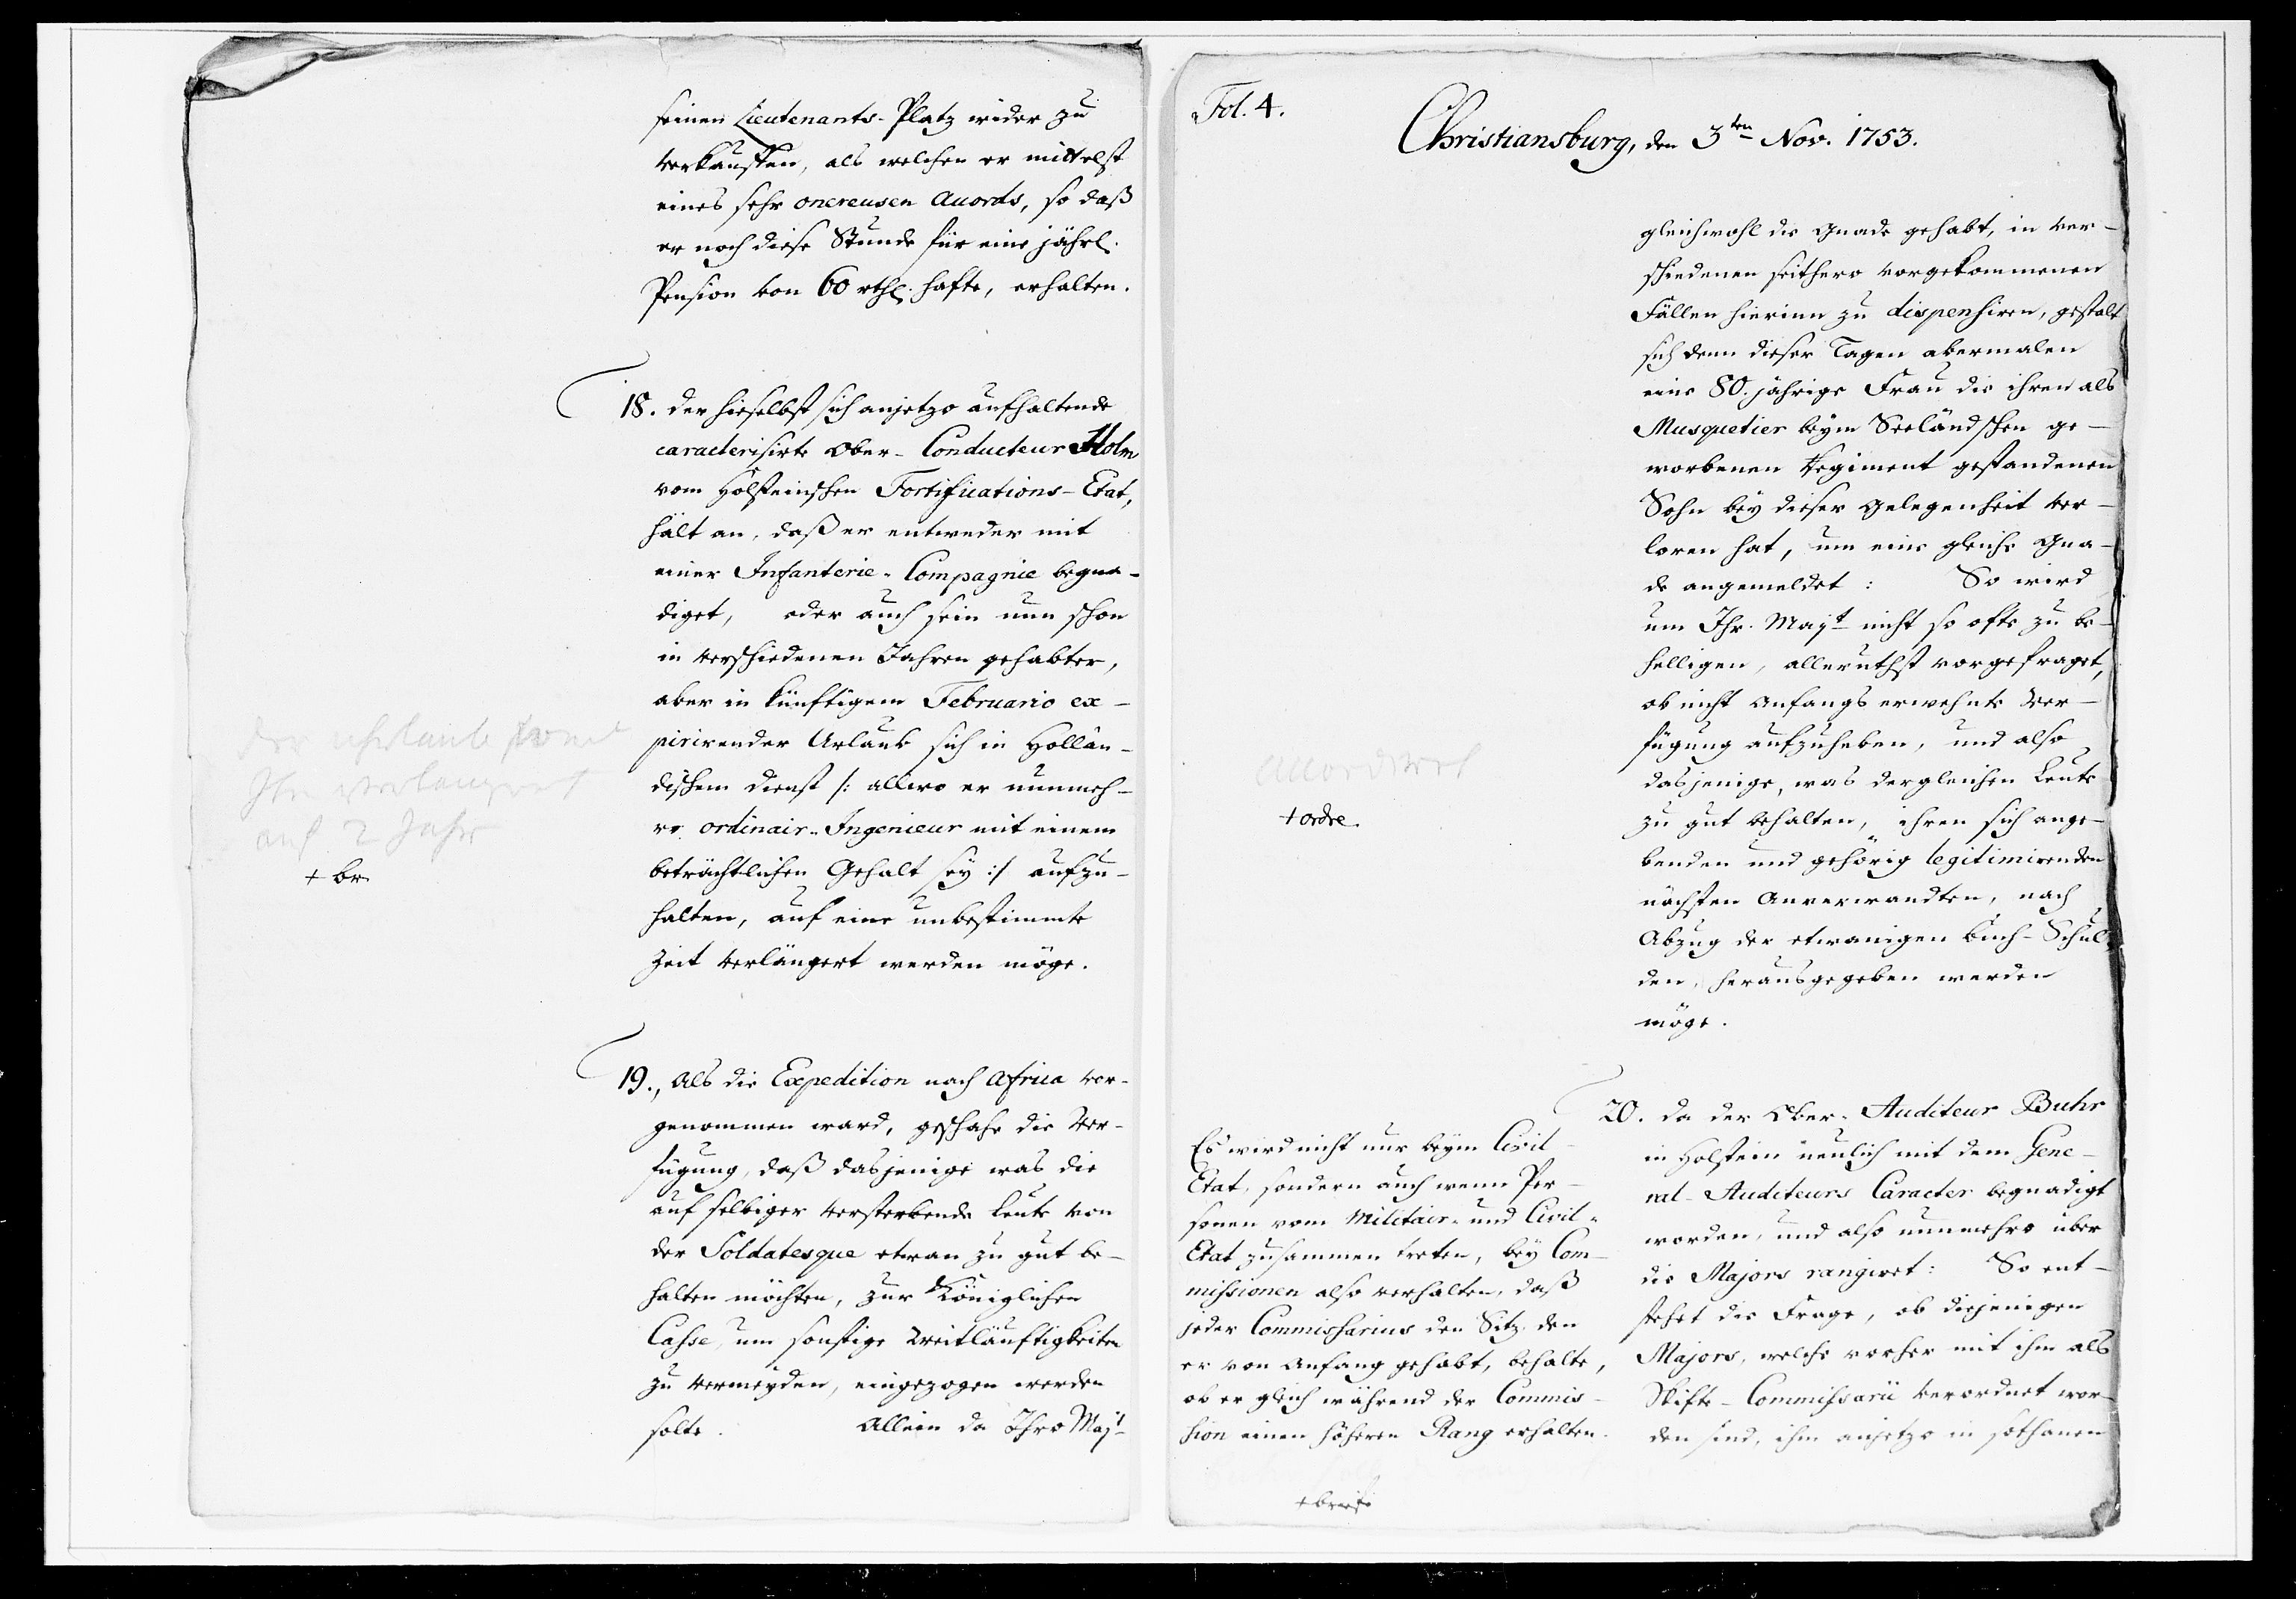 seinen Lieutenants-Platz wider zu
verkauffen, als welchen er mittelst
eines sehr onereusen Accords, so daß
er noch diese Stunde für eine jährl.
Pension von 60 rthl. hafte, erhalten.
18. Der hieselbst sich anjetzo aufhaltende
caracterisirte Ober-Conducteur Holm
vom Holsteinschen Fortifications-Etat,
hält an, daß er entweder mit
einer Infanterie-Compagnie begna-
diget, oder auch sein nun schon
in verschiedenen Jahren gehabter,
aber in künftigem Februario ex-
pirirender Urlaub sich in Hollän-
dischem Dienst /: allwo er nunmeh-
ro ordinair-Ingenieur mit einem
beträchtlichen Gehalt sey :/ aufzu-
halten, auf eine unbestimmte
Zeit verlängert werden möge.
auf 2 Jahr
+ br.
19., Als die Expedition nach Africa vor-
genommen ward, geschahe die Ver-
fügung, daß dasjenige was die
auf selbiger versterbende Leute von
der Soldatesque etwan zu gut be-
halten möchten, zur Königlichen
Casse, um sonstige Weitläuftigkeiten
zu vermeyden, eingezogen werden
solte. Allein da Ihro Majt
Fol. 4.
Christiansburg, den 3ten Nov. 1753.
gleichwohl die Gnade gehabt, in ver-
schiedenen seithero vorgekommenen
Fällen hierinn zu dispensiren, gestalt
sich denn dieser Tagen abermalen
eine 80. jährige Frau die ihren als
Musquetier beym Seeländschen ge-
worbenen Regiment gestandenen
Sohn bey dieser Gelegenheit ver-
loren hat, um eine gleiche Gna-
de angemeldet: So wird
um Ihr. Majt nicht so ofte zu be-
helligen, allerunthst vorgefraget,
ob nicht Anfangs erwehnte Ver-
fügung aufzuheben, und also
dasjenige, was dergleichen Leute
zu gut behalten, ihren sich ange-
benden und gehörig legitimirenden
nächsten Anverwandten, nach
Abzug der etwanigen Buch-Schul-
den, herausgegeben werden
möge.
+ ordre
20. Da der Ober-Auditeur Buhr
in Holstein neulich mit dem Gene-
ral-Auditeurs Caracter begnadigt
worden, und also nunmehro über
die Majors rangiret: So ent-
stehet die Frage, ob diejenigen
Majors, welche vorher mit ihm als
Stifts-Commissarii verordnet wor-
den sind, ihm anjetzo in sothanen
Es wird nicht nur beym Civil-
Etat, sondern auch wenn Per-
sonen vom Militair- und Civil-
Etat zusammen treten, bey Com-
missionen also verhalten, daß
jeder Commissarius den Sitz, den
er von Anfang gehabt, behalte,
ob er gleich während der Commis-
sion einen höheren Rang erhalten.